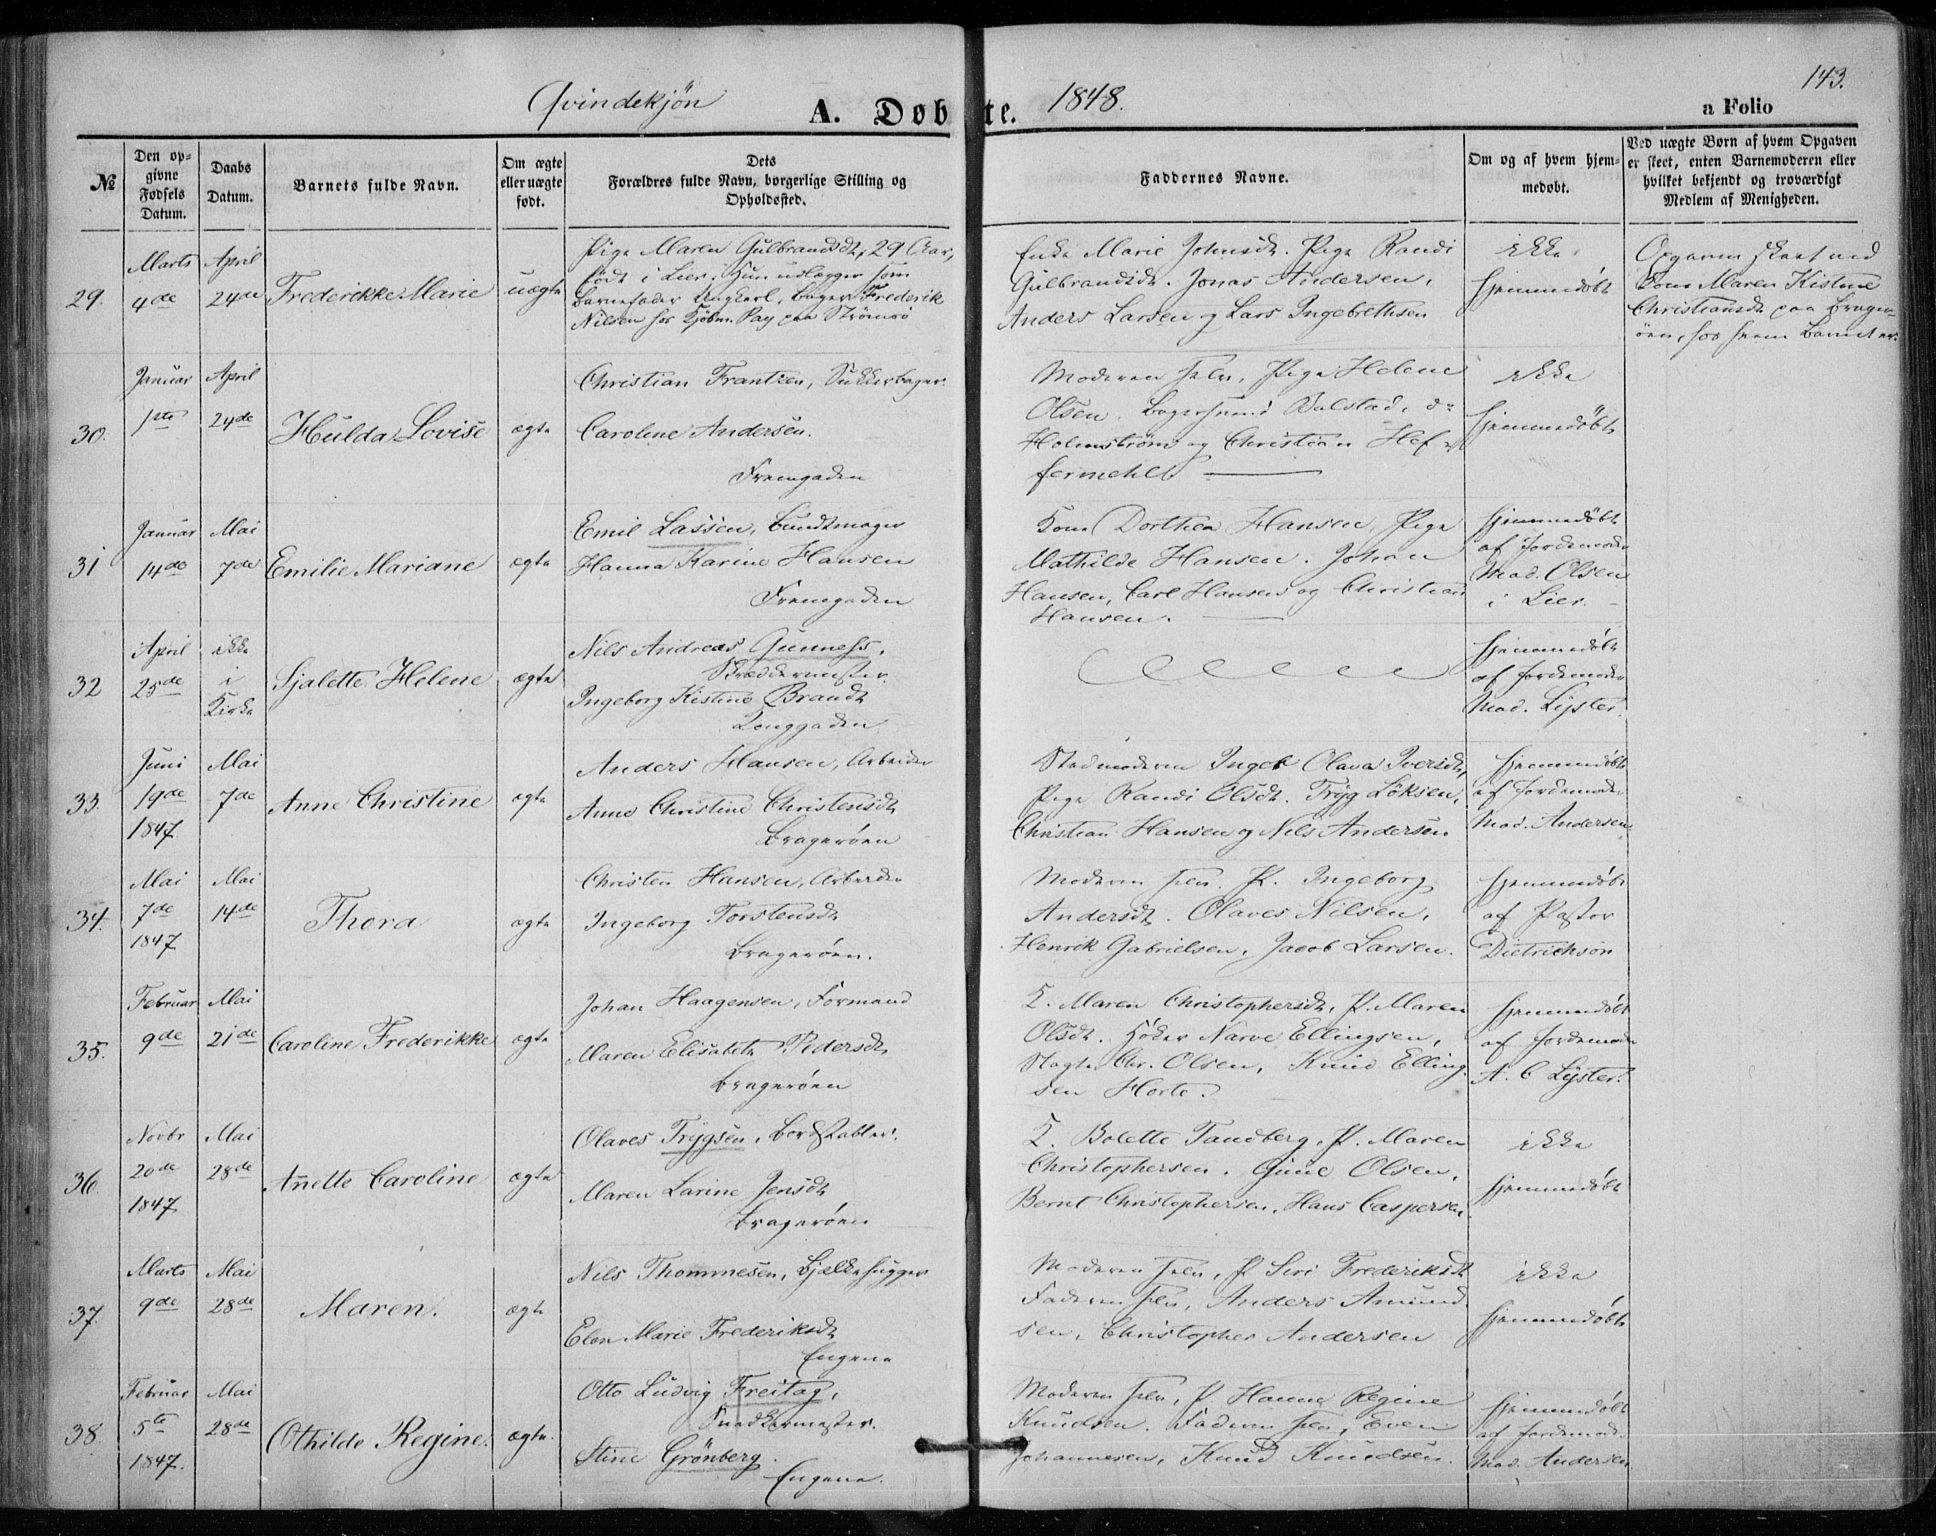 Qvindekjön
A. Døbte.
1848.
143.
a Folio
№
Den opgivne Fødsels Datum.
Daabs Datum.
Barnets fulde Navn.
Om ægte eller uægte født.
Dets
Forældres fulde Navn, borgerlige Stilling og
Opholdssted.
Faddernes Navne.
Om og af hvem hjemmedøbt.
Ved uægte Børn af hvem Opgaven
er skeet, enten Barnemoderen eller
hvilket bekjendt og troværdigt
Medlem af Menigheden.
29.
Marts
4de
April
24de
Frederikke Marie
uægte
Pige Maren Gulbrandsdt, 29 Aar,
født i Lier. Hun udlægger som
Barnefader Ungkarl, Bager Frederik
Nilsen hos Kjöbm. Pay paa Strömsö
Enke Marie Johnsdt. Pige Randi
Gulbrandsdt. Jonas Andersen,
Anders Larsen og Lars Ingebrethsen
ikke
hjemmedöbt
Opgaven skeet ved
Kone Maren Kistine
Christiansdt paa Brager-
öen, hos hvem Barnet er.
30.
Januar
1ste
April
24de
Hulda Lovise
ægte
Christian Frantzen, Sukkerbager.
Caroline Andersen.
Fremgaden
Moderen selv, Pige Helene
Olsen. Bagersvend Dalstad, do
Holmström og Christian Hef-
fermehl
ikke
hjemmedöbt
31
Januar
14de
Mai
7de
Emilie Mariane
ægte
Emil Lassen, Bundtmager
Hanna Karine Hansen
Fremgaden
Kone Dorthea Hansen, Pige
Mathilde Hansen. Johan
Hansen, Carl Hansen og Christian
Hansen.
hjemmedöbt
af Jordemoder
Mad. Olsen
i Lier.
32
April
25de
ikke
i
Kirke
Sjalette Helene
ægte
Nils Andreas Gunness,
Skræddermester.
Ingeborg Kistine Brandt
Konggaden
hjemmedöbt
af Jordemoder
Mad. Lyster.
33.
Juni
19de
1847.
Mai
7de
Anne Christine
ægte
Anders Hansen, Arbeider
Anne Christine Christensdt
Brageröen
Stedmoderen Ingeb Olava Iversdt,
Pige Randi Olsdt. Tryg Löksen,
Christian Hansen og Nils Andersen
hjemmedöbt
af Jordemoder
Mad. Andersen.
34.
Mai
7de
1847
Mai
14de
Thora
ægte
Christen Hansen, Arbeider
Ingeborg Torstensdt
Brageröen.
Moderen selv. P. Ingeborg
Andersdt. Olaves Nilsen,
Henrik Gabrielsen, Jacob Larsen.
hjemmedöbt
af Pastor
Dietrichson
35.
Februar
9de
Mai
21de
Caroline Frederikke
ægte
Johan Haagensen, Formand
Maren Elisabeth Pedersdt
Brageröen
K. Maren Christophersdt, P. Maren
Olsdt. Höker Narve Ellingsen,
Slagter Chr. Olsen, Knud Elling-
sen Horte.
hjemmedöbt
af Jordemoder
A. C Lyster.
36.
Novbr
20de
1847.
Mai
28de
Anette Caroline
ægte
Olaves Trygsen, Bordstabler.
Maren Larine Jensdt
Brageröen
K. Bolette Tandberg, P. Maren
Christophersen. Gune Olsen,
Bernt Christophersen, Hans Caspersen.
ikke
hjemmedöbt
37.
Marts
9de
Mai
28de
Maren.
ægte
Nils Thommesen, Bjelkehugger
Elen Marie Frederiksdt
Engene
Moderen selv, P Siri Frederiksdt
Faderen selv, Anders Amund-
sen, Christopher Andersen
ikke
hjemmedöbt
38
Februar
5te
1847.
Mai
28de
Othilde Regine.
ægte.
Otto Ludvig Freitag,
Snedkermester.
Stine Grönberg.
Engene.
Moderen selv, P Hanne Regine
Knudsen. Faderen selv, Even
Johannesen, Knud Knudsen.
hjemmedöbt
af Jordemod.
Mad. Andersen